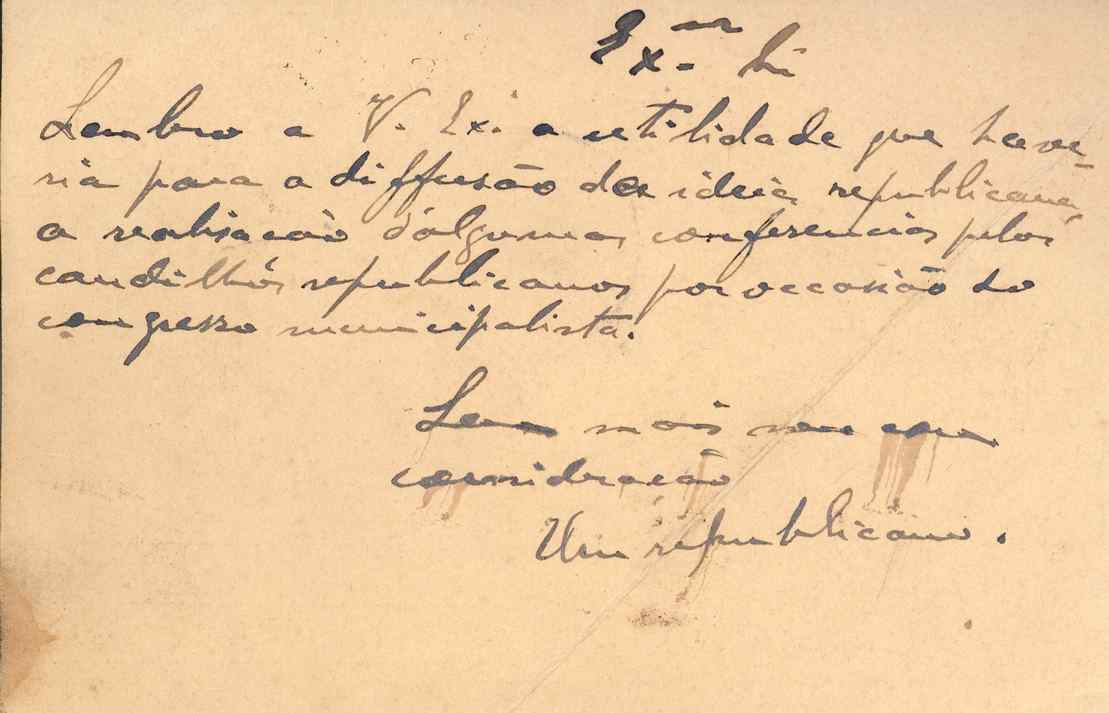 Ex.mo Sr
Lembro a V. Ex. a utilidade que have-
ria para a diffusão da ideia republicana,
a realisação d'algumas conferencias pelos
caudilhos republicanos por occasião do
congresso municipalista.
Sem mais sou com
consideração
Um republicano.